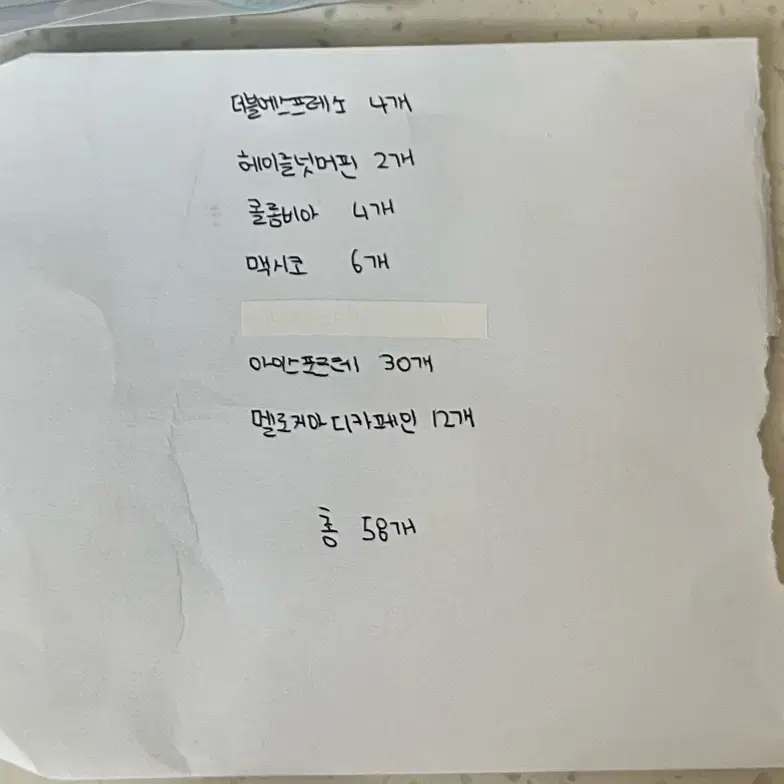 더블에스프레소 4개
헤이즐넛머핀 2개
콜롬비아 4개
맥시코 6개
아이스포르테 30개
멜로지아 디카페인 12개
총 58개